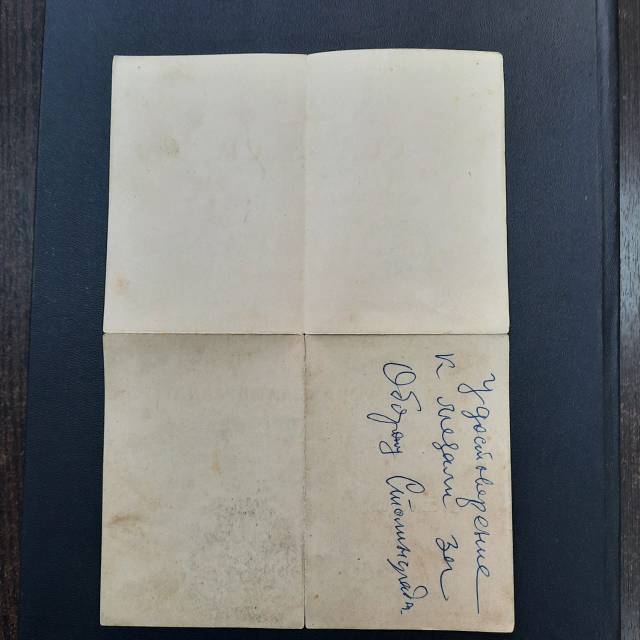 Удостоверение
к медали За
Оборону Сталинграда